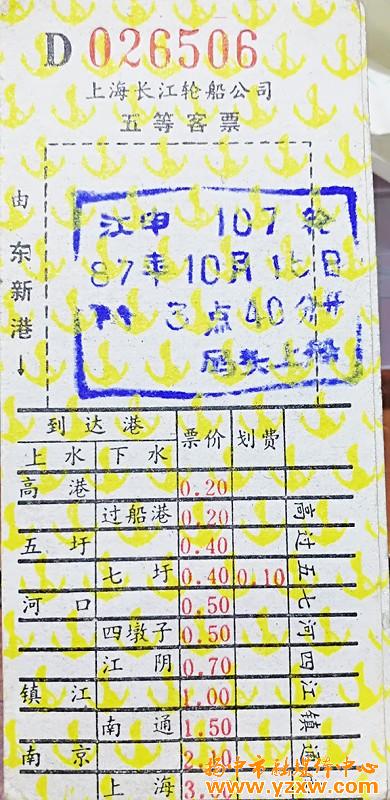 D 026506
上海长江轮船公司
五等客票
由东新港↓
江申 107 轮
87年10月16日
3点40分开
码头上船
到达港 票价 划费
上水 下水
高港 0.20
过船港 0.20
五圩 0.40
七圩 0.40 0.10
河口 0.50
四墩子 0.50
江阴 0.70
镇江 1.00
南通 1.50
南京 2.10
上海 3.
高过五七河四江镇通
扬中市融媒体中心
www.yzxw.com